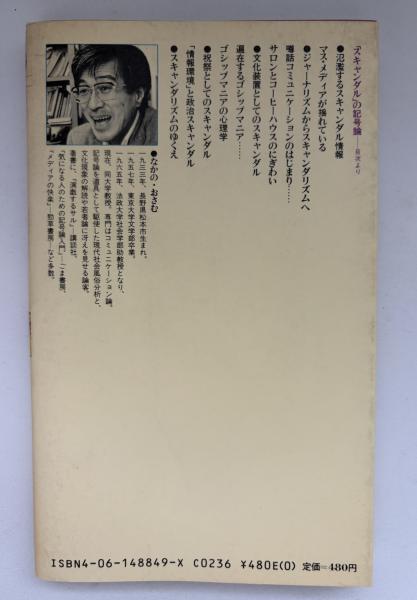 『スキャンダル』の記号論―目次より
●氾濫するスキャンダル情報
マス・メディアが揺れている
●ジャーナリズムからスキャンダリズムへ
噂話コミュニケーションのはじまり……
サロンとコーヒーハウスのにぎわい
●文化装置としてのスキャンダル
遍在するゴシップマニア……
ゴシップマニアの心理学
●祝祭としてのスキャンダル
「情報環境」と政治スキャンダル
●スキャンダリズムのゆくえ
●なかの・おさむ
一九三三年、長野県松本市生まれ。
一九五七年、東京大学文学部卒業。
一九六五年、法政大学社会学部助教授となり、
現在、同大学教授。専門はコミュニケーション論。
記号論を道具として駆使した現代社会風俗分析と、
文化現象の解読や若者論に冴えを見せる論客。
著書に、『演戯するサル』―講談社、
『気になる人のための記号論入門』―ごま書房、
『メディアの快楽』―勁草書房―など多数。
ISBN4-06-148849-X C0236 ¥480E(0) 定価=480円